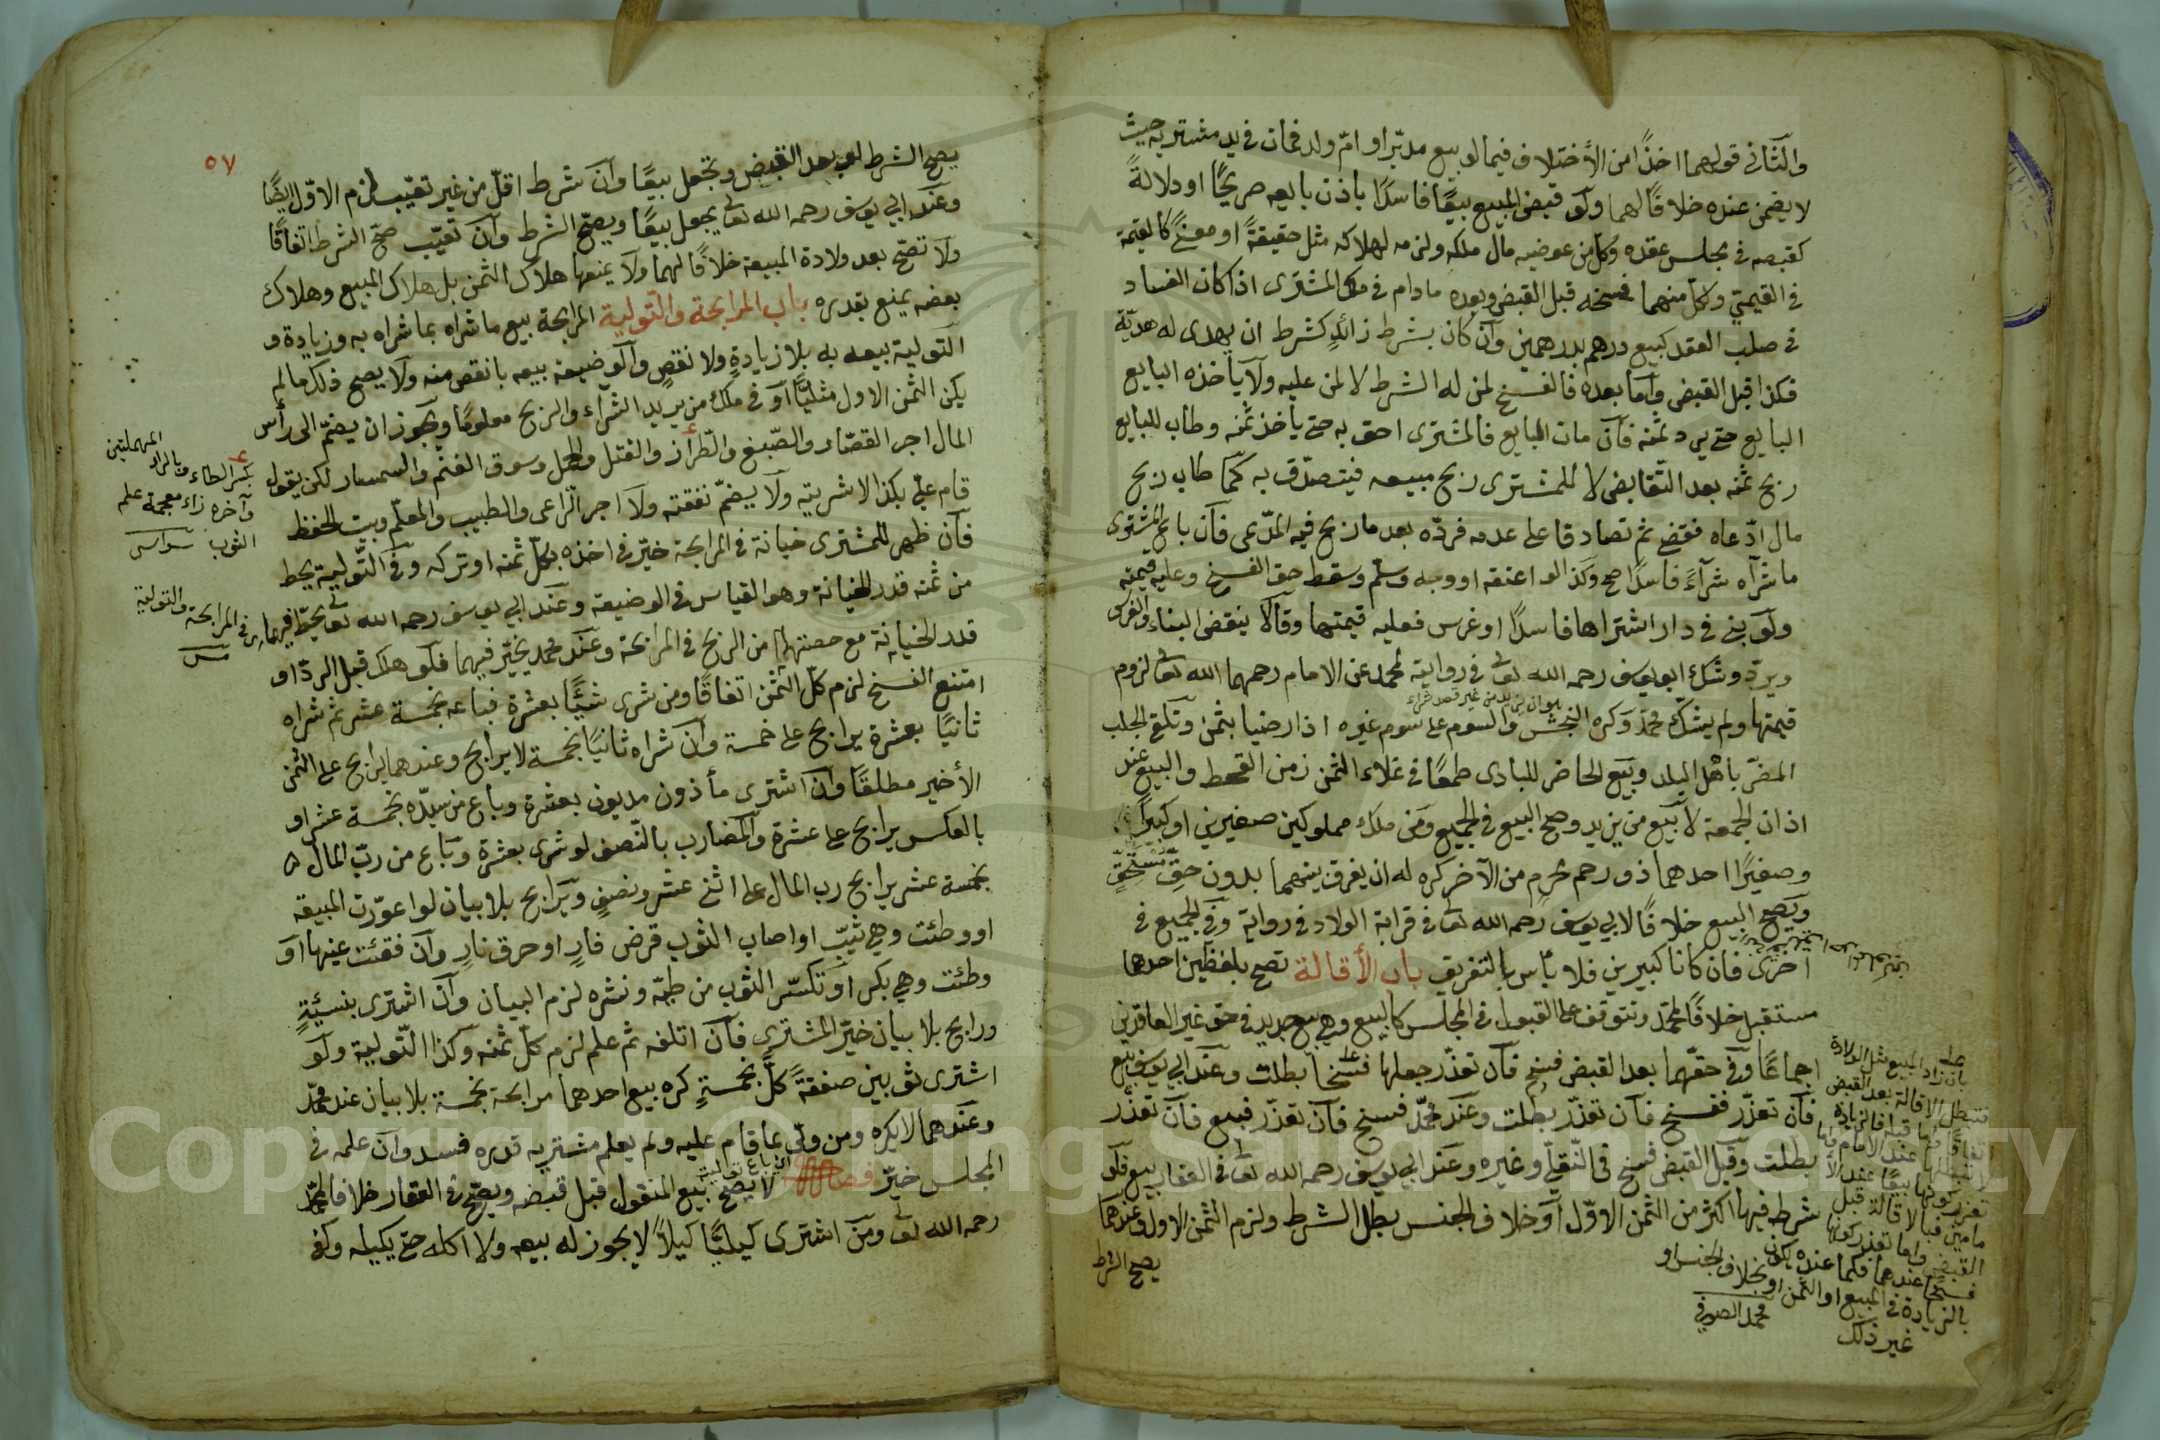 والثاني قولهما اخذًا من الأختلاف فيما لو بيع مدبّر او امّ ولد فمات في يد مشتريه حيث
لا يضمن عنده خلافًا لهما ولو قبض المبيع بيعًا فاسدًا باذن بايعه صريحًا او دلالةً
كقبضه في مجلس عقده وكل من عوضيه مال ملكه ولزمه لهلاكه مثل حقيقةً او معنىً كالقيمة
في القيمي ولكلّ منهما فسخه قبل القبض وبعده ما دام في ملك المشترى اذا كان الفساد
في صلب العقد كبيع درهم بدرهمين وان كان بشرط زائدٍ كشرط ان يهدى له هديّة
فكذا قبل القبض وامّا بعده فالفسخ لمن له الشرط لا لمن عليه ولا يأخذه البايع
البايع حتى يرد ثمنه فان مات البايع فالمشترى احق به حتى يأخذ ثمنه وطاب للبايع
ربح ثمنه بعد التقابض لا للمشترى ربح مبيعه فيتصدّق به كما طاب ربح
مال ادّعاه فقضى ثم تصادقا على عدمه فردّه بعد ما ربح فيه المدّعى فان باع المشترى
ما شراه شرآءً فاسدًا صح وكذا لو اعتقه او وهبه وسلّم وسقط حق الفسخ وعليه قيمته
ولو بنى في دار اشتراها فاسدًا او غرس فعليه قيمتها وقالا ينقض البناء والغرس
ويردّ وشك ابو يوسف رحمه الله تعالى في رواية لمحمد عن الامام رحمهما الله تعالى لزوم
قيمتها ولم يشك محمد وكره النجش والسوم على سوم غيره اذا رضيا بثمن وتلقى الجلب
المضرّ باهل البلد وبيع الحاضر للبادى طمعًا في غلاء الثمن زمن القحط والبيع عند
اذان الجمعة لا بيع من يزيد وصح البيع في الجميع ومن ملك مملوكين صغيرين او كبيرًا
وصغيرًا احدهما ذو رحم محرم من الآخر كره له ان يفرق بينهما بدون حقّ مستحقّ
ويصح البيع خلافًا لابي يوسف رحمه الله تعالى في قرابة الولاد في رواية وفي الجميع في
اخرى فان كانا كبيرين فلا بأس بالتفريق باب الأقالة تصح بلفظين احدهما
مستقبل خلافًا لمحمد وتتوقف على القبول في المجلس كالبيع وهي بيع جديد في حق غير العاقدين
اجماعًا وفي حقّهما بعد القبض فسخ فان تعذّر جعلها فسخًا بطلت وعند ابي يوسف بيع
فان تعذّر ففسخ فان تعذّر بطلت وعند محمّد فسخ فان تعذّر فبيع فان تعذّر
بطلت وقبل القبض فسخ في النّقليّ وغيره وعند ابي يوسف رحمه الله تعالى في العقار بيع فلو
شرط فيها اكثر من الثمن الاوّل او خلاف الجنس بطل الشرط ولزم الثمن الاول وعندهما
يصح الشرط
بان زاد المبيع مثل الولادة
فتبطل الاقالة بعد القبض
بالزيادة في المبيع او الثمن او بخلاف الجنس او
غير ذلك
محمد الصوفي
٥٧
يصح الشرط لو بعد القبض وتجعل بيعًا وان شرط اقلّ من غير تعيّب لزم الاوّل ايضًا
وعند ابي يوسف رحمه الله تعالى يجعل بيعًا ويصحّ الشرط وان تعيّب صحّ الشرط اتفاقًا
ولا تصحّ بعد ولادة المبيعة خلافًا لهما ولا يمنعها هلاك الثمن بل هلاك المبيع وهلاك
بعضه يمنع بقدره باب المرابحة والتّولية المرابحة بيع ما شراه بما شراه به وزيادة و
التولية بيعه به بلا زيادةٍ ولا نقصٍ والوضيعة بيعه بانقص منه ولا يصح ذلك ما لم
يكن الثمن الاول مثليًّا او في ملك من يريد الشرآء والربح معلومًا ويجوز ان يضمّ الى رأس
المال اجر القصّار والصّبغ والطّراز والفتل والحمل وسوق الغنم والسمسار لكن يقول
قام عليّ بكذا لا شريته ولا يضمّ نفقته ولا اجر الرّاعى والطبيب والمعلّم وبيت الحفظ
فان ظهر للمشترى خيانة في المرابحة خيّر في اخذه بكلّ ثمنه او تركه وفي التّولية يحط
من ثمنه قدر الخيانة وهو القياس في الوضيعة وعند ابي يوسف رحمه الله تعالى يحطّ فيهما
قدر الخيانة مع حصتها من الربح في المرابحة وعند محمد يخيّر فيهما فلو هلك قبل الردّ او
امتنع الفسخ لزم كلّ الثمن اتفاقًا ومن شرى شيئًا بعشرة فباعه بخمسة عشر ثم شراه
ثانيًا بعشرة يرابح على خمسة وان شراه ثانيًا بخمسة لا يرابح وعندهما يرابح على الثمن
الأخير مطلقًا وان اشترى مأذون مديون بعشرة وباع من سيّده بخمسة عشر او
بالعكس يرابح على عشرة والمضارب بالنّصف لو شرى بعشرة وباع من ربّ المال
بخمسة عشر يرابح رب المال على اثنى عشر ونصفٍ ويرابح بلا بيان لو اعورّت المبيعة
او وطئت وهي ثيّب او اصاب الثوب قرض فارٍ او حرق نارٍ وان فقئت عينها او
وطئت وهي بكر او تكسّر الثوب من طيّه ونشره لزم البيان وان اشترى بنسيئةٍ
ورابح بلا بيان خيّر المشترى فان اتلفه ثم علم لزم كلّ ثمنه وكذا التّولية ولو
اشترى ثوبين صفقةً كلًّ بخمسةٍ كره بيع احدهما مرابحة بخمسة بلا بيان عند محمّد
وعندهما لا يكره ومن ولّى بما قام عليه ولم يعلم مشتريه قدره فسد وان علمه في
المجلس خيّر فصل لا يصحّ بيع المنقول قبل قبضه ويصحّ في العقار خلافا لمحمّد
رحمه الله تعالى ومن اشترى كيليًّا كيلًا لا يجوز له بيعه ولا اكله حتّى يكيله وكفى
المهملتين
بكسر الطاء وبالراء
وآخره زاء معجمة علم
الثوب
في المرابحة والتولية
Copyright © King Saud University